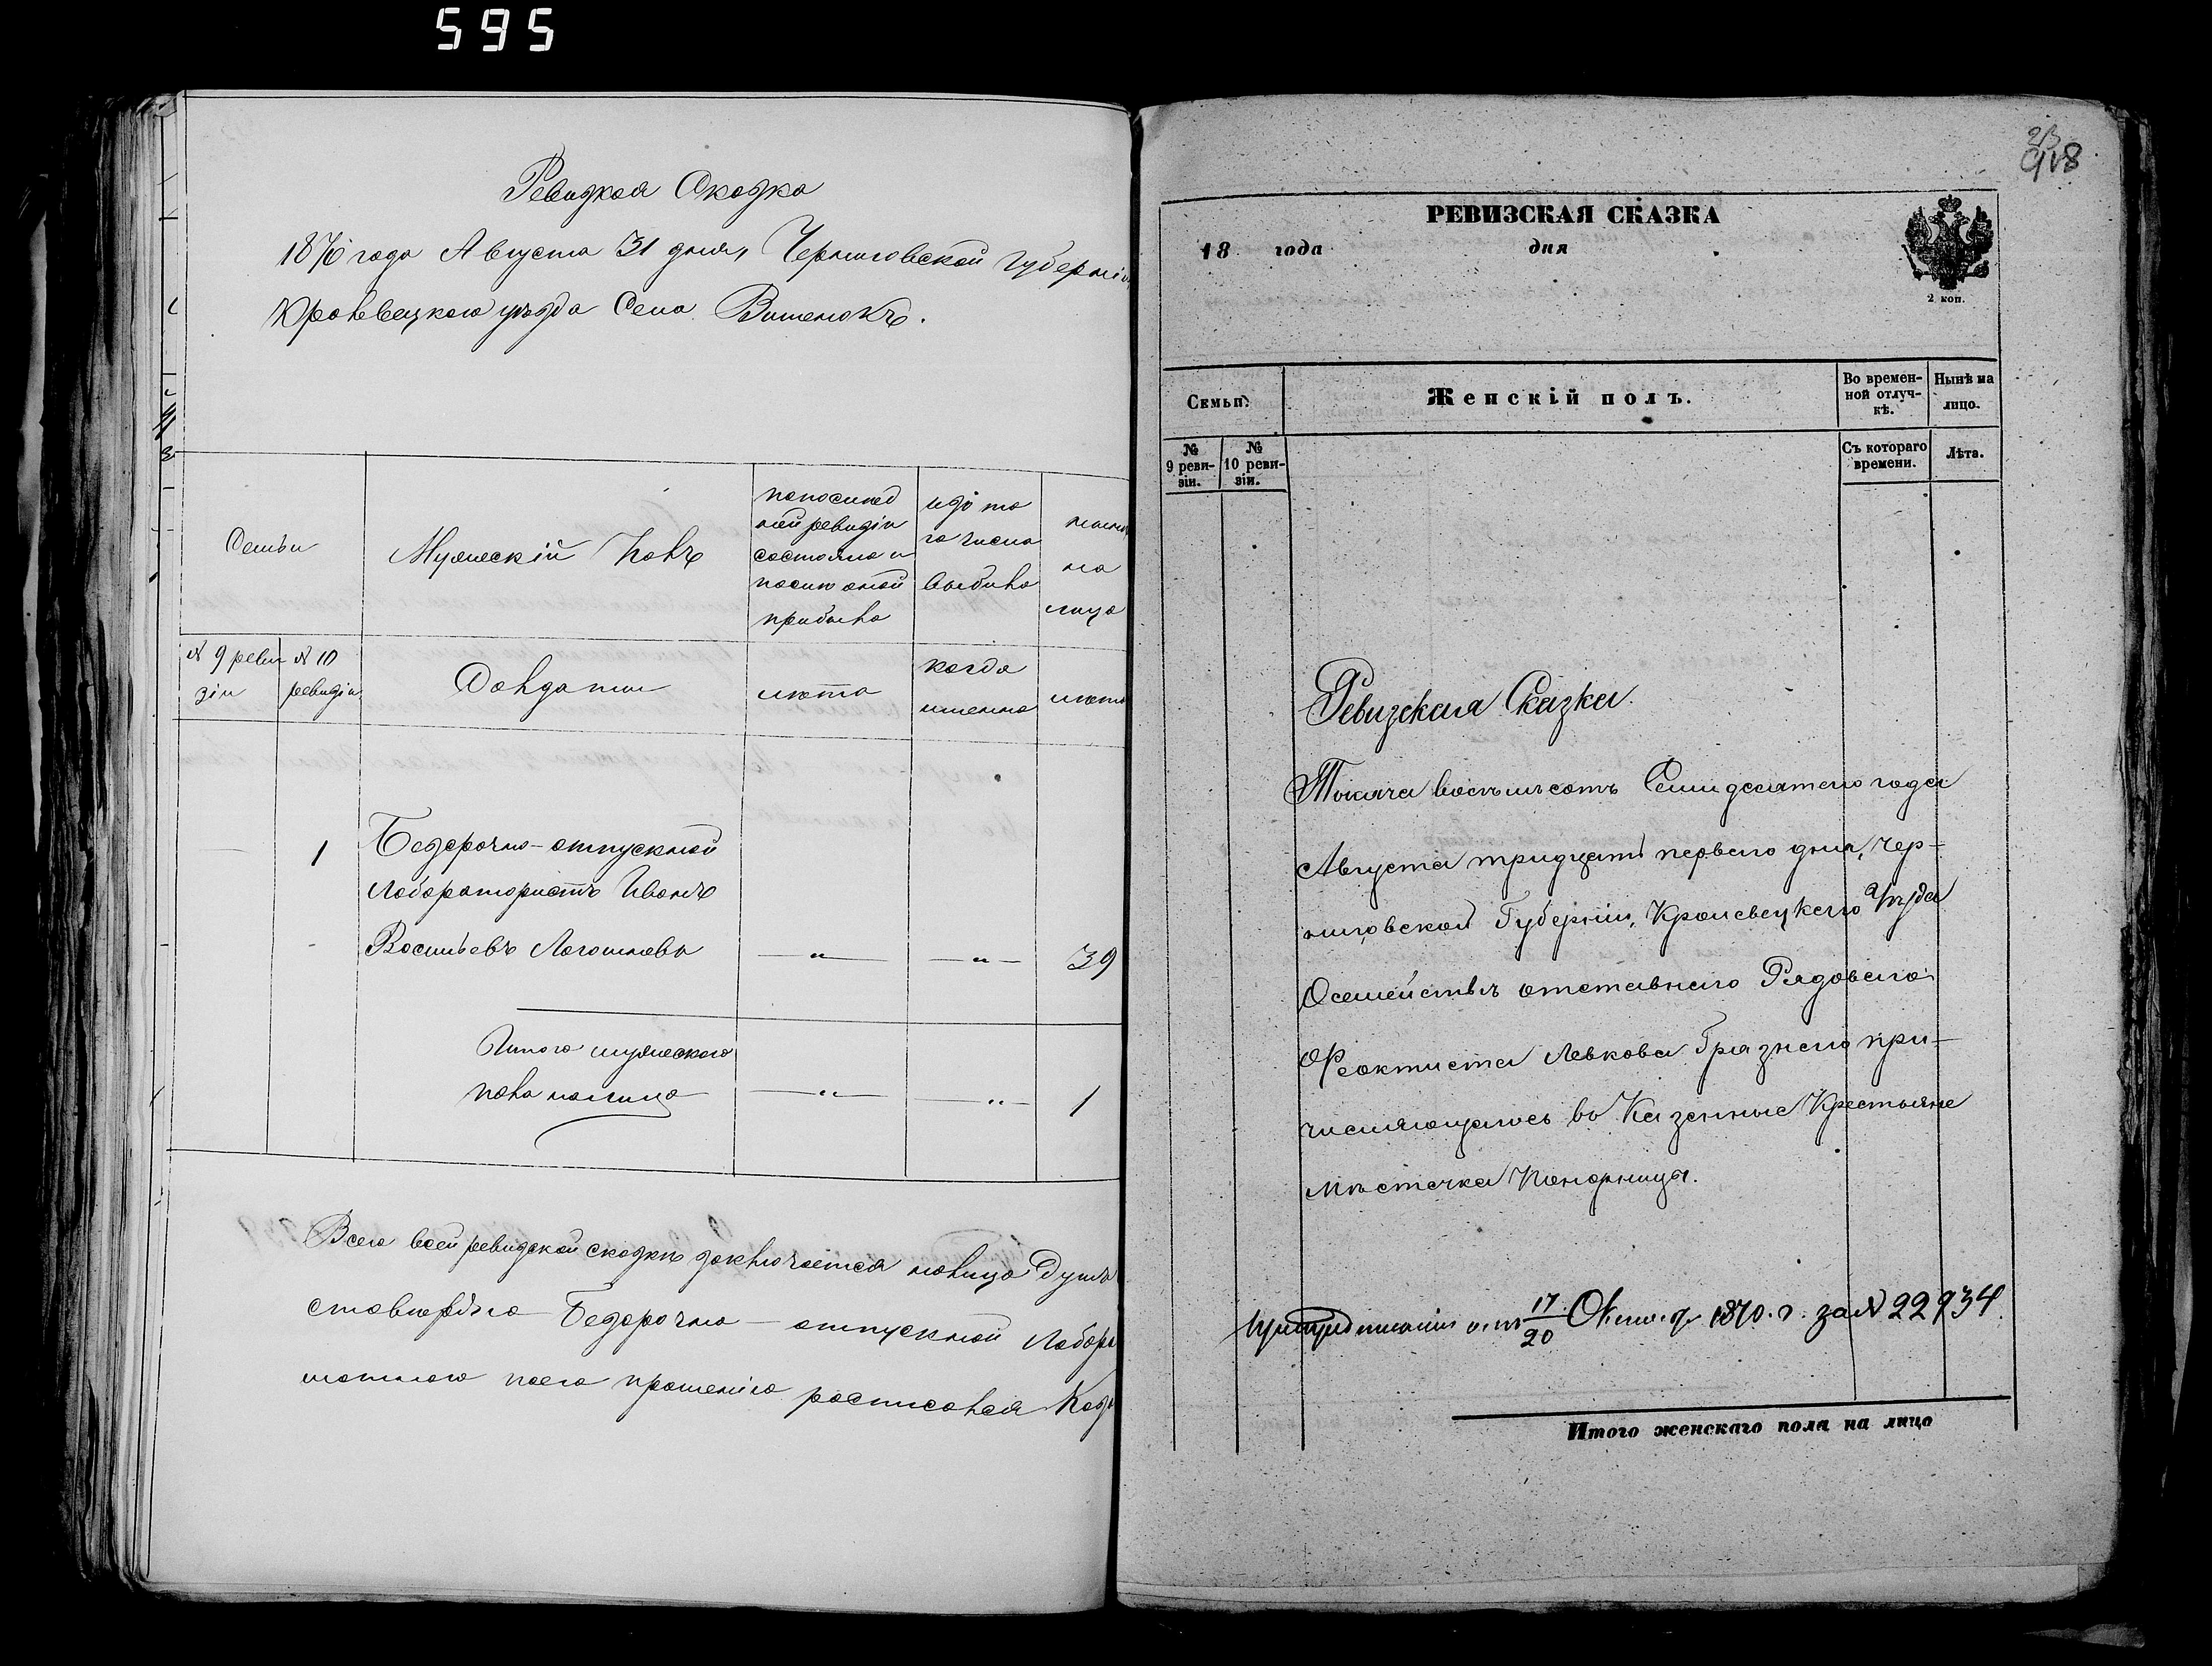 595
Ревизкая Сказка
1870 года Августа 31 дня, Черниговской Губерніи
Кролевецкого уѣзда Села Вишенокъ.
Семьи
Мужескій Полъ
попослед
ней ревизіи
состояло и
после оной
прибыло
изъ то
го числа
выбыло
на
лицо
№ 9 реви
зіи
№ 10
ревизіи
Солдатъ
лѣта
когда
именно
лѣта
1
Безсрочно-отпускной
Лабораториcтъ Иванъ
Васильевъ
— " —
— " —
39
Итого мужеского
пола налицо
— " —
— " —
1
Всего всей ревизской сказкѣ заключается налицо Душъ
Безсрочно-отпускной
его прошенію росписался
918
РЕВИЗСКАЯ СКАЗКА
18 года дня
2 коп.
Семьи.
Женскій полъ.
Во времен-
ной отлуч-
кѣ.
Нынѣ на
лицо.
№
9 реви-
зіи.
№
10 реви-
зіи.
Съ котораго
времени.
Лѣта.
Ревизская Сказка.
Тысяча восемьсотъ Семидесятого года
Августа тридцать первого дня, Чер-
ниговской Губерніи, Кролевецкого Уѣзда
Осемействѣ отставнаго Рядоваго
Феоктиста Левкова Грязнаго при-
числяющагось въ Казенные Крестьяне
мѣстечка Понорницы.
17/20 1870. г. за № 22934
Итого женскаго пола на лицо